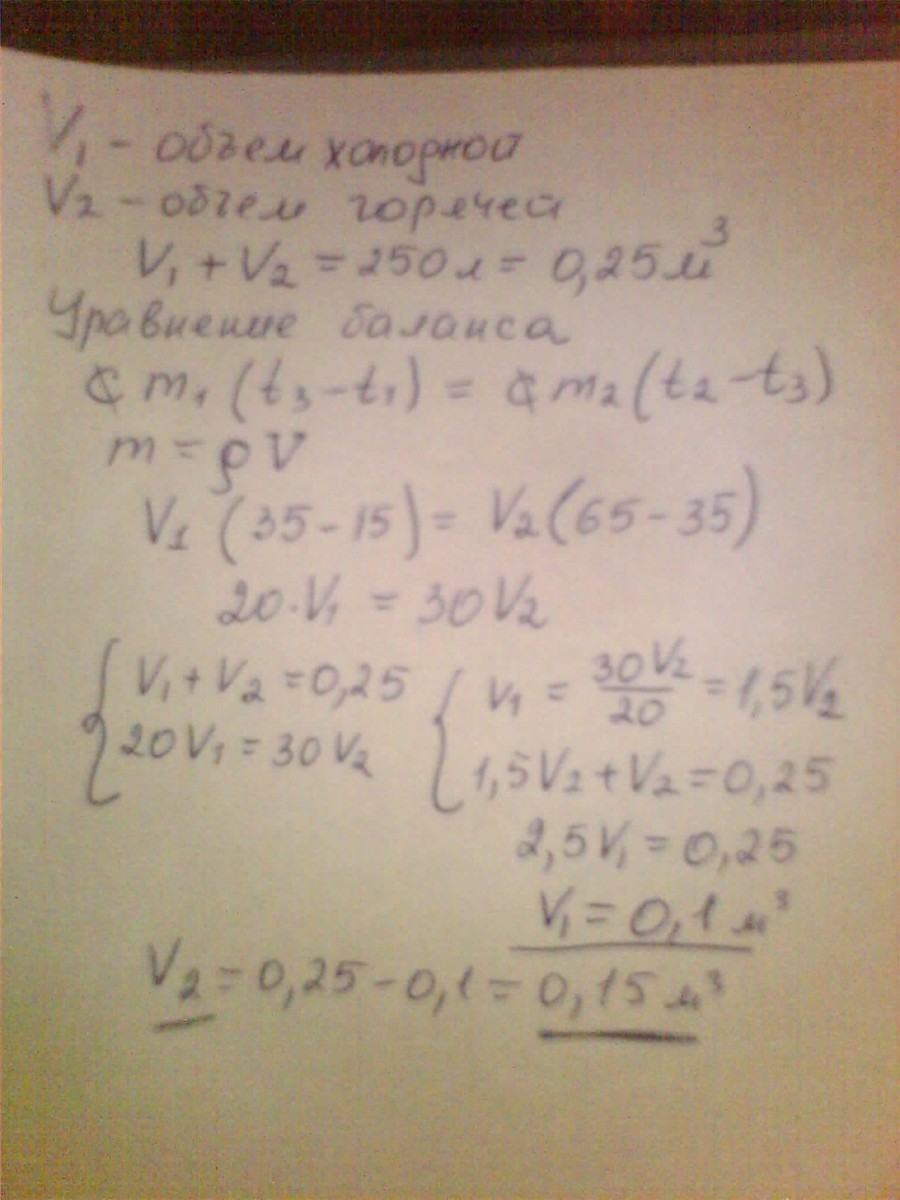 V₁ - объем холодной
V₂ - объем горячей
V₁ + V₂ = 250 л = 0,25 м³
Уравнение баланса
c m₁ (t₃ - t₁) = c m₂ (t₂ - t₃)
m = ρV
V₁ (35 - 15) = V₂ (65 - 35)
20·V₁ = 30V₂
{ V₁ + V₂ = 0,25 { V₁ = 30V₂/20 = 1,5V₂
20V₁ = 30V₂ 1,5V₂ + V₂ = 0,25
2,5V₁ = 0,25
V₁ = 0,1 м³
V₂ = 0,25 - 0,1 = 0,15 м³